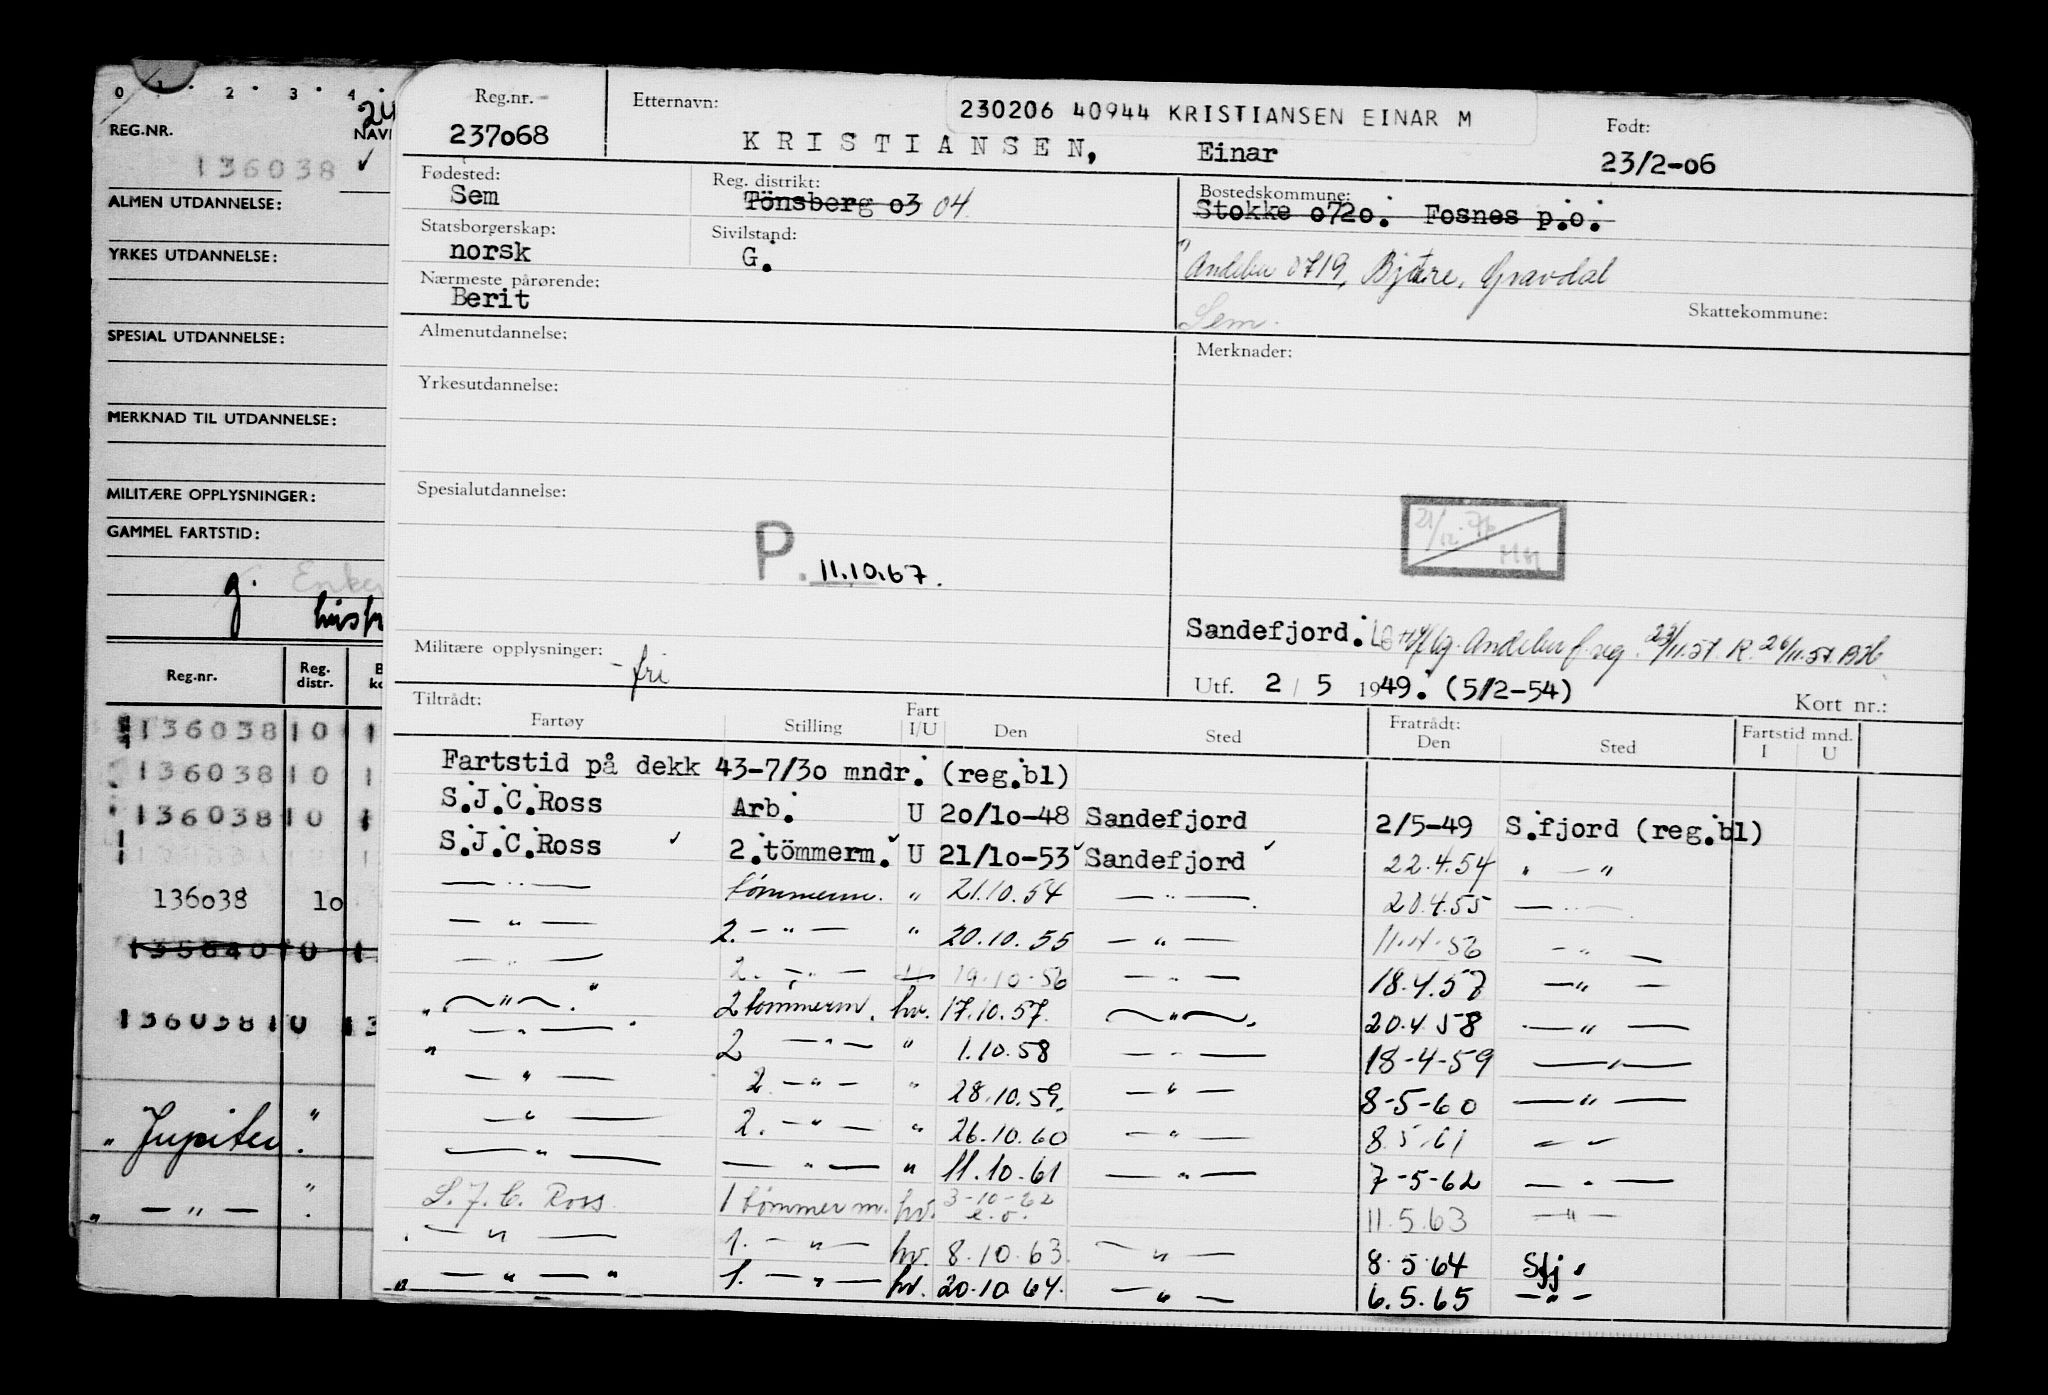 0 1 2 3 4
REG.NR.
NAV
136038 ✓
ALMEN UTDANNELSE:
YRKES UTDANNELSE:
SPESIAL UTDANNELSE:
MERKNAD TIL UTDANNELSE:
MILITÆRE OPPLYSNINGER:
GAMMEL FARTSTID:
g.
Reg.nr. Reg. distr.
136038 10 1
136038 10 1
136038 10 1
136038 10
135840 10 1
136038 10 13
" Jupiter "
" — " — "
Reg.nr. Etternavn: 230206 40944 KRISTIANSEN EINAR M Født:
237068 KRISTIANSEN, Einar 23/2-06
Fødested: Reg. distrikt: Bostedskommune:
Sem Tönsberg 03 04 Stokke 0720. Fosnes p.o.
Statsborgerskap: Sivilstand:
norsk G. " Andebu 0719, Gravdal
Nærmeste pårørende: Skattekommune:
Berit Sem.
Almenutdannelse: Merknader:
Yrkesutdannelse:
Spesialutdannelse:
21/12-76 HH
P. 11.10.67.
Sandefjord. Andebu f. reg. 23/11.57. R. 26/11.57.
Militære opplysninger: - fri
Utf. 2 / 5 1949. (5/2-54) Kort nr.:
Tiltrådt: Fratrådt: Fartstid mnd.
Fartøy Stilling Fart I/U Den Sted Den Sted I U
Fartstid på dekk 43-7/30 mndr. (reg.bl)
S.J.C.Ross Arb. U 20/10-48 Sandefjord 2/5-49 S.fjord (reg.bl)
S.J.C.Ross ✓ 2.tömmerm. ✓ U 21/10-53 ✓ Sandefjord ✓ 22.4.54 " — "
— " — tømmerm. " 21.10.54 — " — 20.4.55 — " —
— " — 2. — " — " 20.10.55 — " — 11.4.56 — " —
— " — 2. — " — U 19.10.56 — " — 18.4.57 — " —
" — " — " 2 tømmerm. hv. 17.10.57. — " — 20.4.58 — " —
" — " — 2 — " — " 1.10.58 — " — 18-4-59 — " —
— " — 2. — " — " 28.10.59. — " — 8-5-60 — " —
— " — 2. — " — " 26.10.60 — " — 8.5.61 — " —
— " — — " — " 11.10.61 — " — 7-5-62 — " —
S. J. C. Ross 1 tømmerm. hv. 3-10-62 e.o. 11.5.63 — " —
— " — 1. — " — hv. 8.10.63. — " — 8.5.64 Sfj.
" — " — " 1. — " — hv. 20.10.64. — " — 6.5.65 — " —